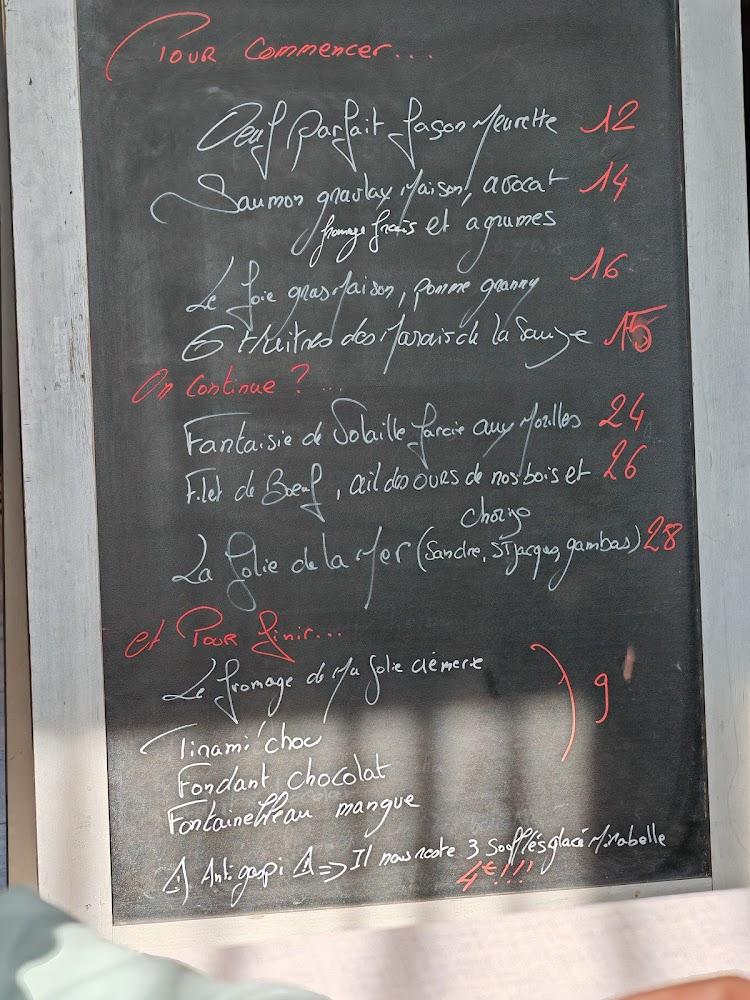 Pour Commencer...
Oeuf parfait façon Meurette 12
Saumon gravlax Maison, avocat 14
fromage frais et agrumes
Le foie gras Maison, pomme granny 16
6 Huitres des Marais de la 15
On Continue ?...
Fantaisie de Volaille farcie aux Morilles 24
Filet de Boeuf, ail des ours de nos bois et 26
chorizo
La folie de la Mer (Sandre, St jacques, gambas) 28
et Pour finir...
Le fromage de Ma folie
Tirami'choc 9
Fondant chocolat
Fontainebleau mangue
⚠ Anti gaspi ⚠ => Il nous reste 3 Soufflés glacé Mirabelle
4€!!!